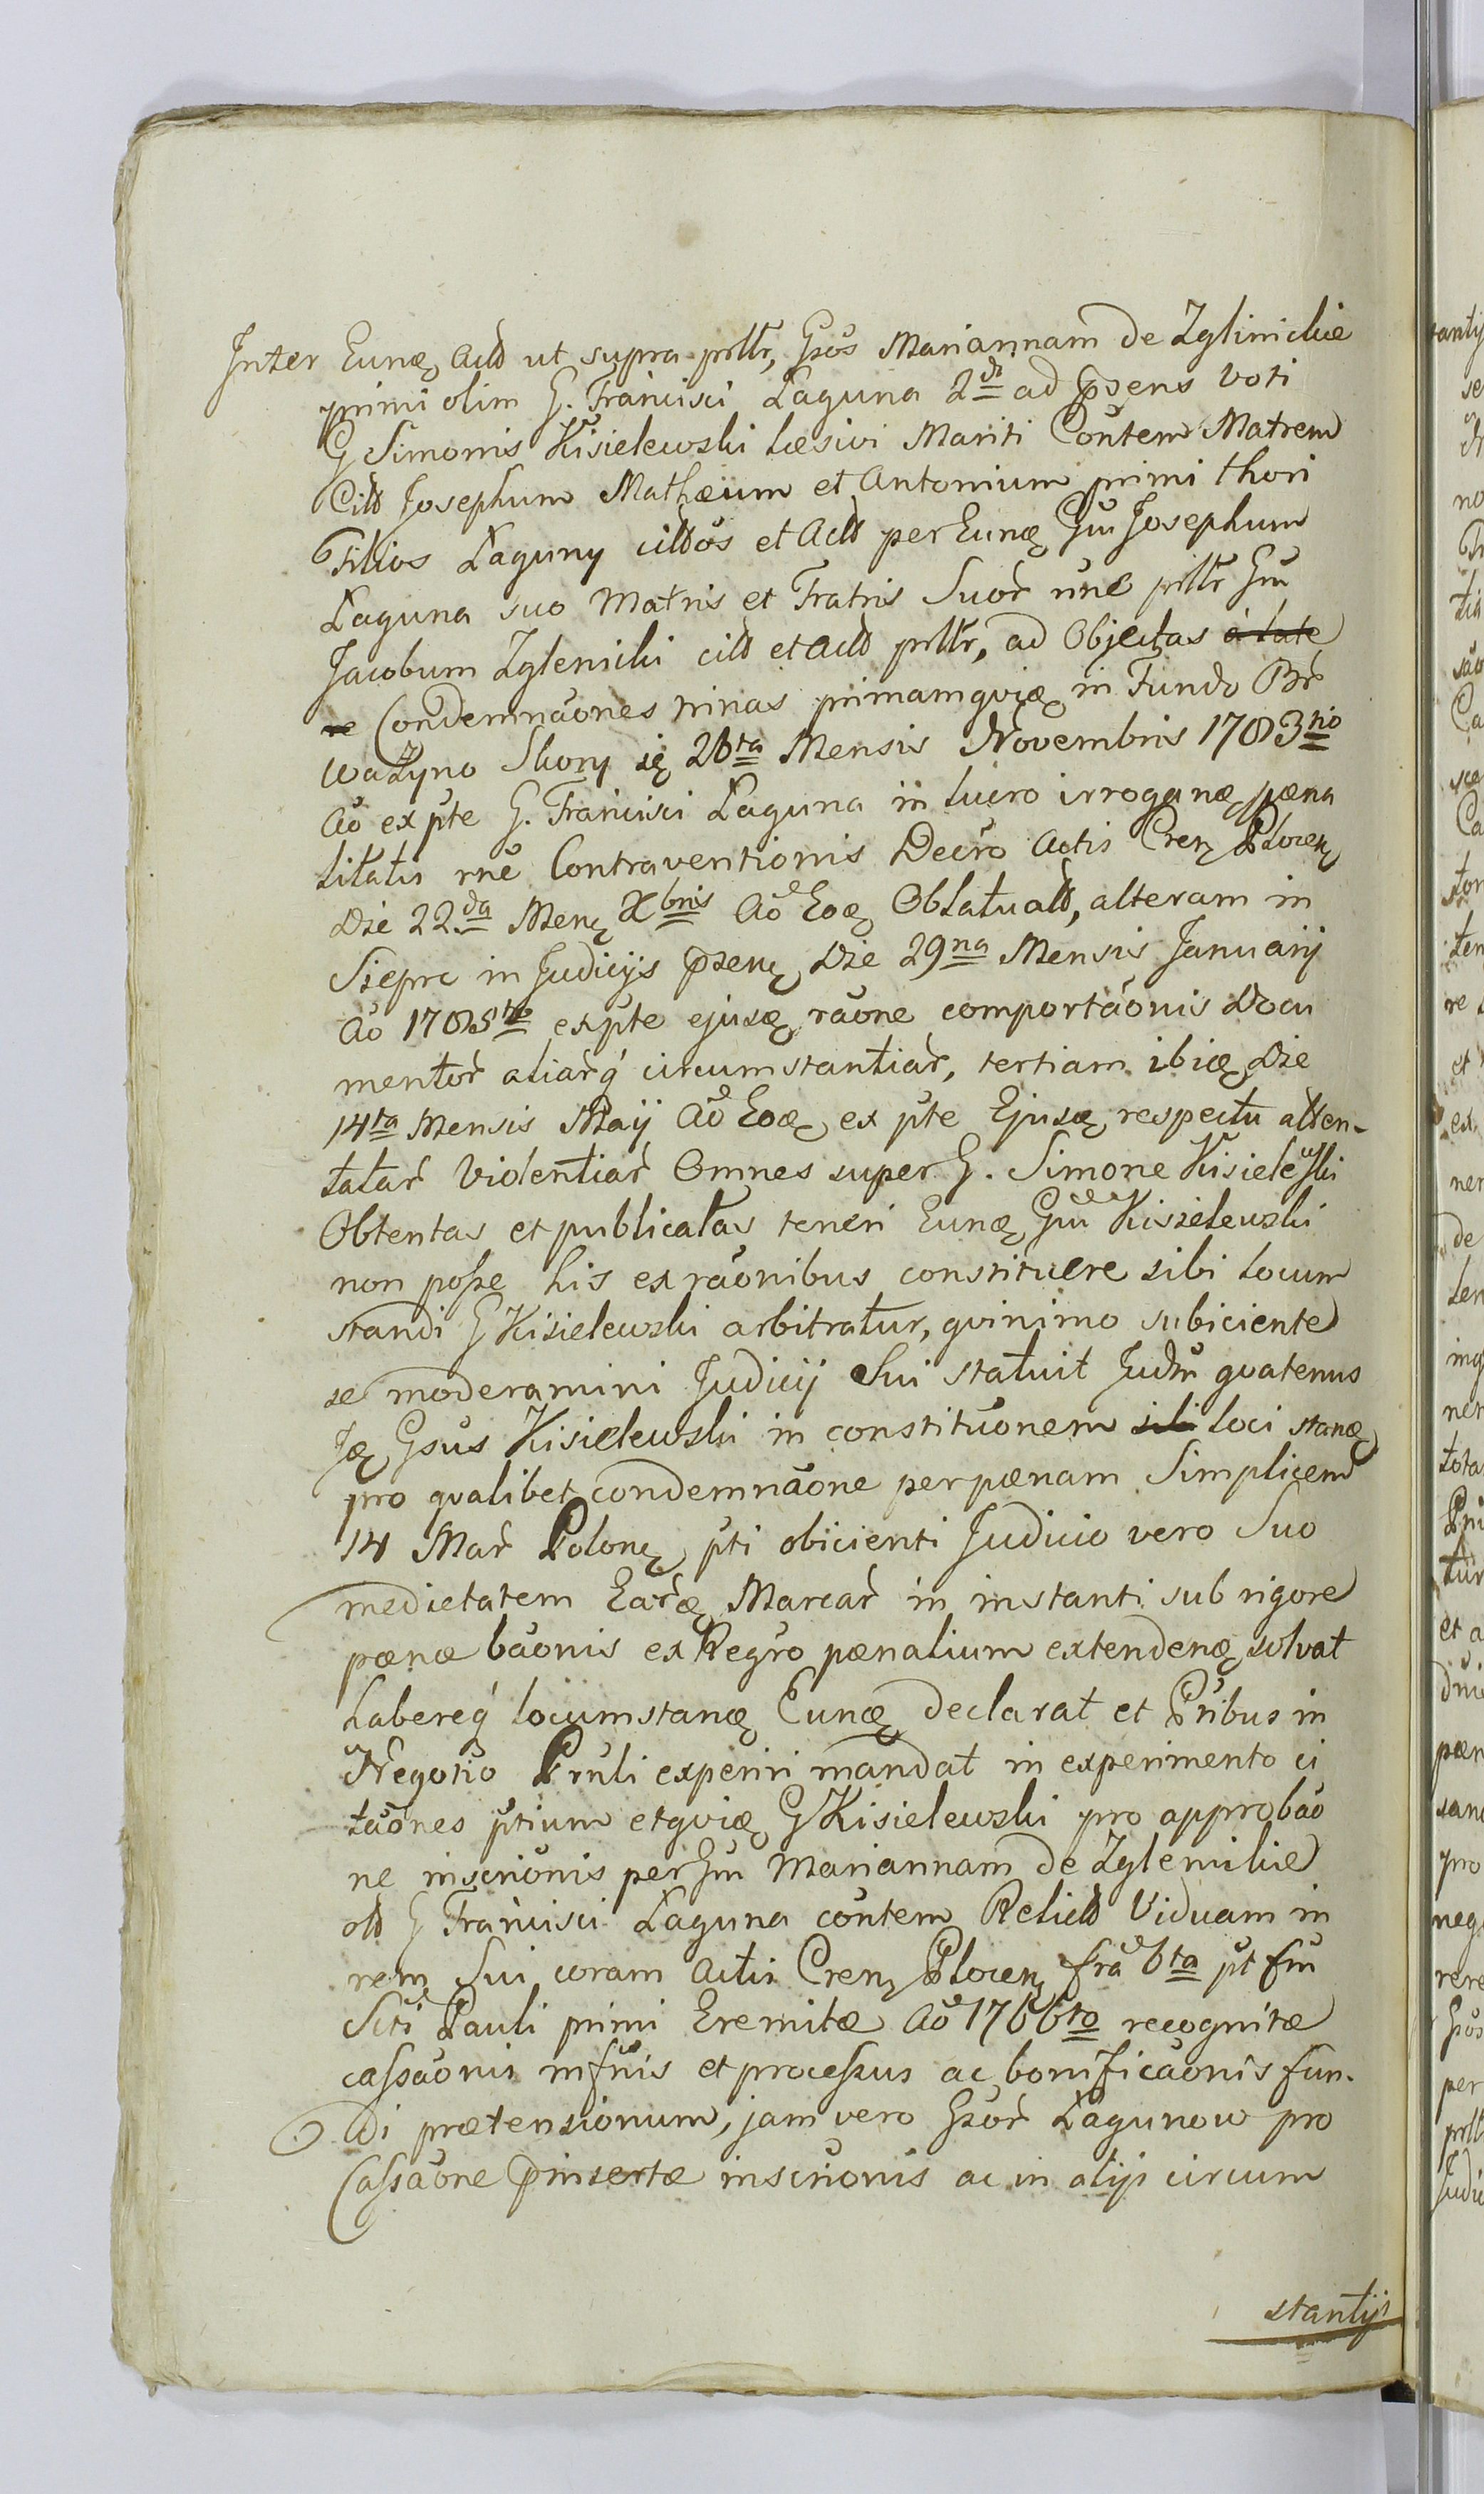 Inter Eunq Actt ut supra prttr, Gsos Mariannam de Zglinickie
primi olim G. Francisci Łaguna 2di ad Psens Voti
G Simonis Kisielewski Læsivi Mariti Contem Matrem
Citt Josephum Mathæum et Antonium primi thori
Filios Łaguny cittos et Actt per Eunq Gm Josephum
Łaguna suo Matris et Fratris Suor nne prttr Gm
Jacobum Zglenicki citt et actt prttr, ad Objectas a late
re Condemnaones trinas primamqviq in Fundo Br
ważyno Skory iq 26ta Mensis Novembris 1783tio
Ao ex pte G. Francisci Łaguna in lucro irroganq pæna
litatis rne Contraventionis Decro Actis Crenq Plocenq
Die 22da Menq Xbris Ao Eoq Oblatu att, alteram in
Sieprc in Judicijs Psenq Die 29na Mensis Januarij
Ao 1785to ex pte ejusq raone comportaonis Docu
mentor aliarq circumstantiar, tertiam ibiq Die
14ta Mensis Maij Ao Eoq ex pte Ejusq respectu atten-
tatar Violentiar Omnes super G. Simone Kisielewski
Obtentas et publicatas teneri Eunq Gm Kisielewski
non posse his ex raonibus constituere sibi locum
standi G Kisielewski arbitratur, qvinimo subiciente
se moderamini Judicij Sui statuit Judm qvatenus
Iq Gsus Kisielewski in constituonem sili loci stanq
pro qvalibet condemnaone per pænam Simplicem
14 Mar Polonq pti obicienti Judicio vero Suo
medietatem Earq Marcar in instanti sub rigore
pænæ baonis ex Regro pænalium extendenq solvat
habereq locum stanq Eunq declarat et Pribus in
Negotio Prnli experiri mandat in experimento ci
taones ptium et qviq G Kisielewski pro approbao
ne inscrionis per Gm Mariannam de Zglenickie
ott G Francisci Łaguna contem Relictt Viduam in
rem Sui coram Actis Crenq Plocenq fra 6ta pt fm
Scti Pauli primi Eremitæ Ao 1766to recognitæ
cassaonis mfnis et processus ac bonificaonis fun-
di prætensionum, jam vero Gsor Łagunow pro
Cassaone Pinsertæ inscrionis ac in alijs circum
stantijs